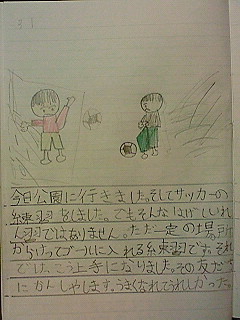 今日公園に行きました。そしてサッカーの
練習をしました。でもそんなはげしいれ
ん習ではありません。ただ一定の場所
からけってゴールに入れる練習です。それ
で、けっこう上手になりました。その友だち
にかんしゃします。うまくなれてうれしかった。